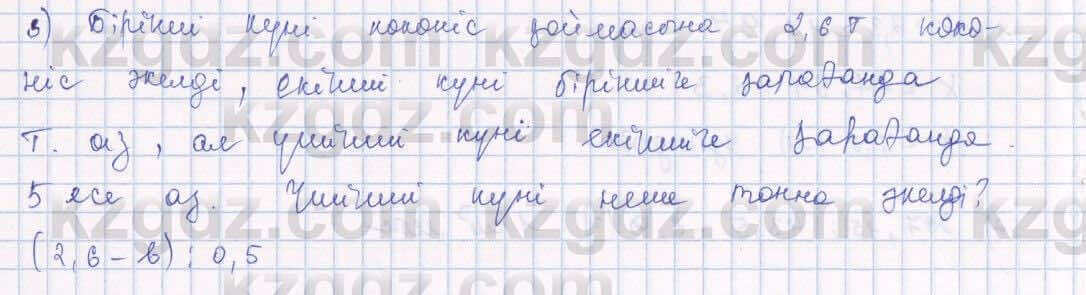 3) Бірінші күні көкөніс қоймасына 2,6 т көкө-
ніс әкелді, екінші күні біріншіге қарағанда
т. аз, ал үшінші күні екіншіге қарағанда.
5 есе аз. Үшінші күні неше тонна әкелді?
(2,6 - в) : 0,5
kzgdz.com